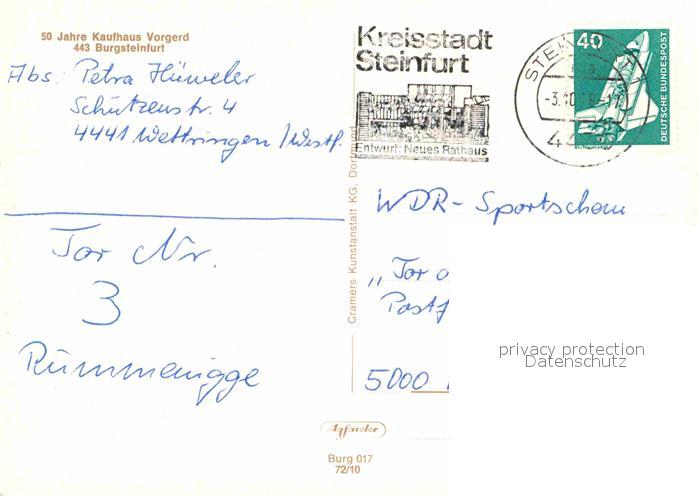 50 Jahre Kaufhaus Vorgerd
443 Burgsteinfurt
Abs: Petra Hüweler
Schützenstr. 4
4441 Wettringen/Westf.
Tor Nr.
3
Rummenigge
Cramers Kunstanstalt KG, Dortm
Kreisstadt
Steinfurt
Entwurf: Neues Rathaus
STEIN
-3.10
44
40
DEUTSCHE BUNDESPOST
WDR - Sportschau
„Tor
Postf
5000
privacy protection
Datenschutz
Agfacolor
Burg 017
72/10